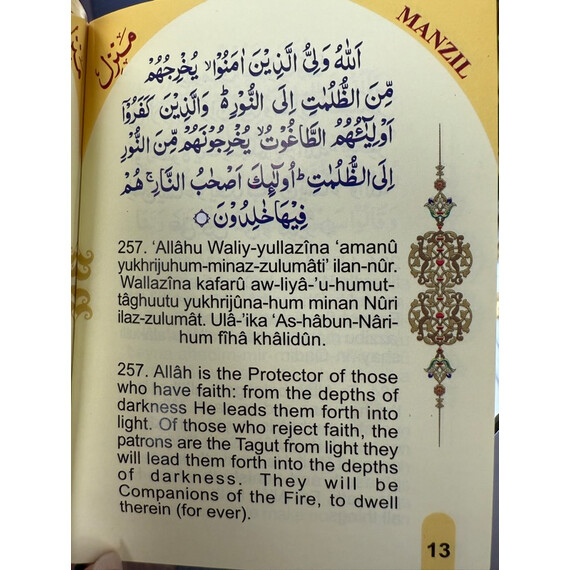 منزل
MANZIL
اَللّٰهُ وَلِىُّ الَّذِيْنَ اٰمَنُوْا ۙ يُخْرِجُهُمْ
مِّنَ الظُّلُمٰتِ اِلَى النُّوْرِ ؕ وَالَّذِيْنَ كَفَرُوْۤا
اَوْلِيٰٓـئُهُمُ الطَّاغُوْتُ ۙ يُخْرِجُوْنَهُمْ مِّنَ النُّوْرِ
اِلَى الظُّلُمٰتِ ؕ اُولٰٓئِكَ اَصْحٰبُ النَّارِ ۚ هُمْ
فِيْهَا خٰلِدُوْنَ
257. ‘Allâhu Waliy-yullazîna ‘amanû
yukhrijuhum-minaz-zulumâti’ ilan-nûr.
Wallazîna kafarû aw-liyâ-’u-humut-
tâghuutu yukhrijûna-hum minan Nûri
ilaz-zulumât. Ulâ-’ika ‘As-hâbun-Nâri-
hum fîhâ khâlidûn.
257. Allâh is the Protector of those
who have faith: from the depths of
darkness He leads them forth into
light. Of those who reject faith, the
patrons are the Tagut from light they
will lead them forth into the depths
of darkness. They will be
Companions of the Fire, to dwell
therein (for ever).
13